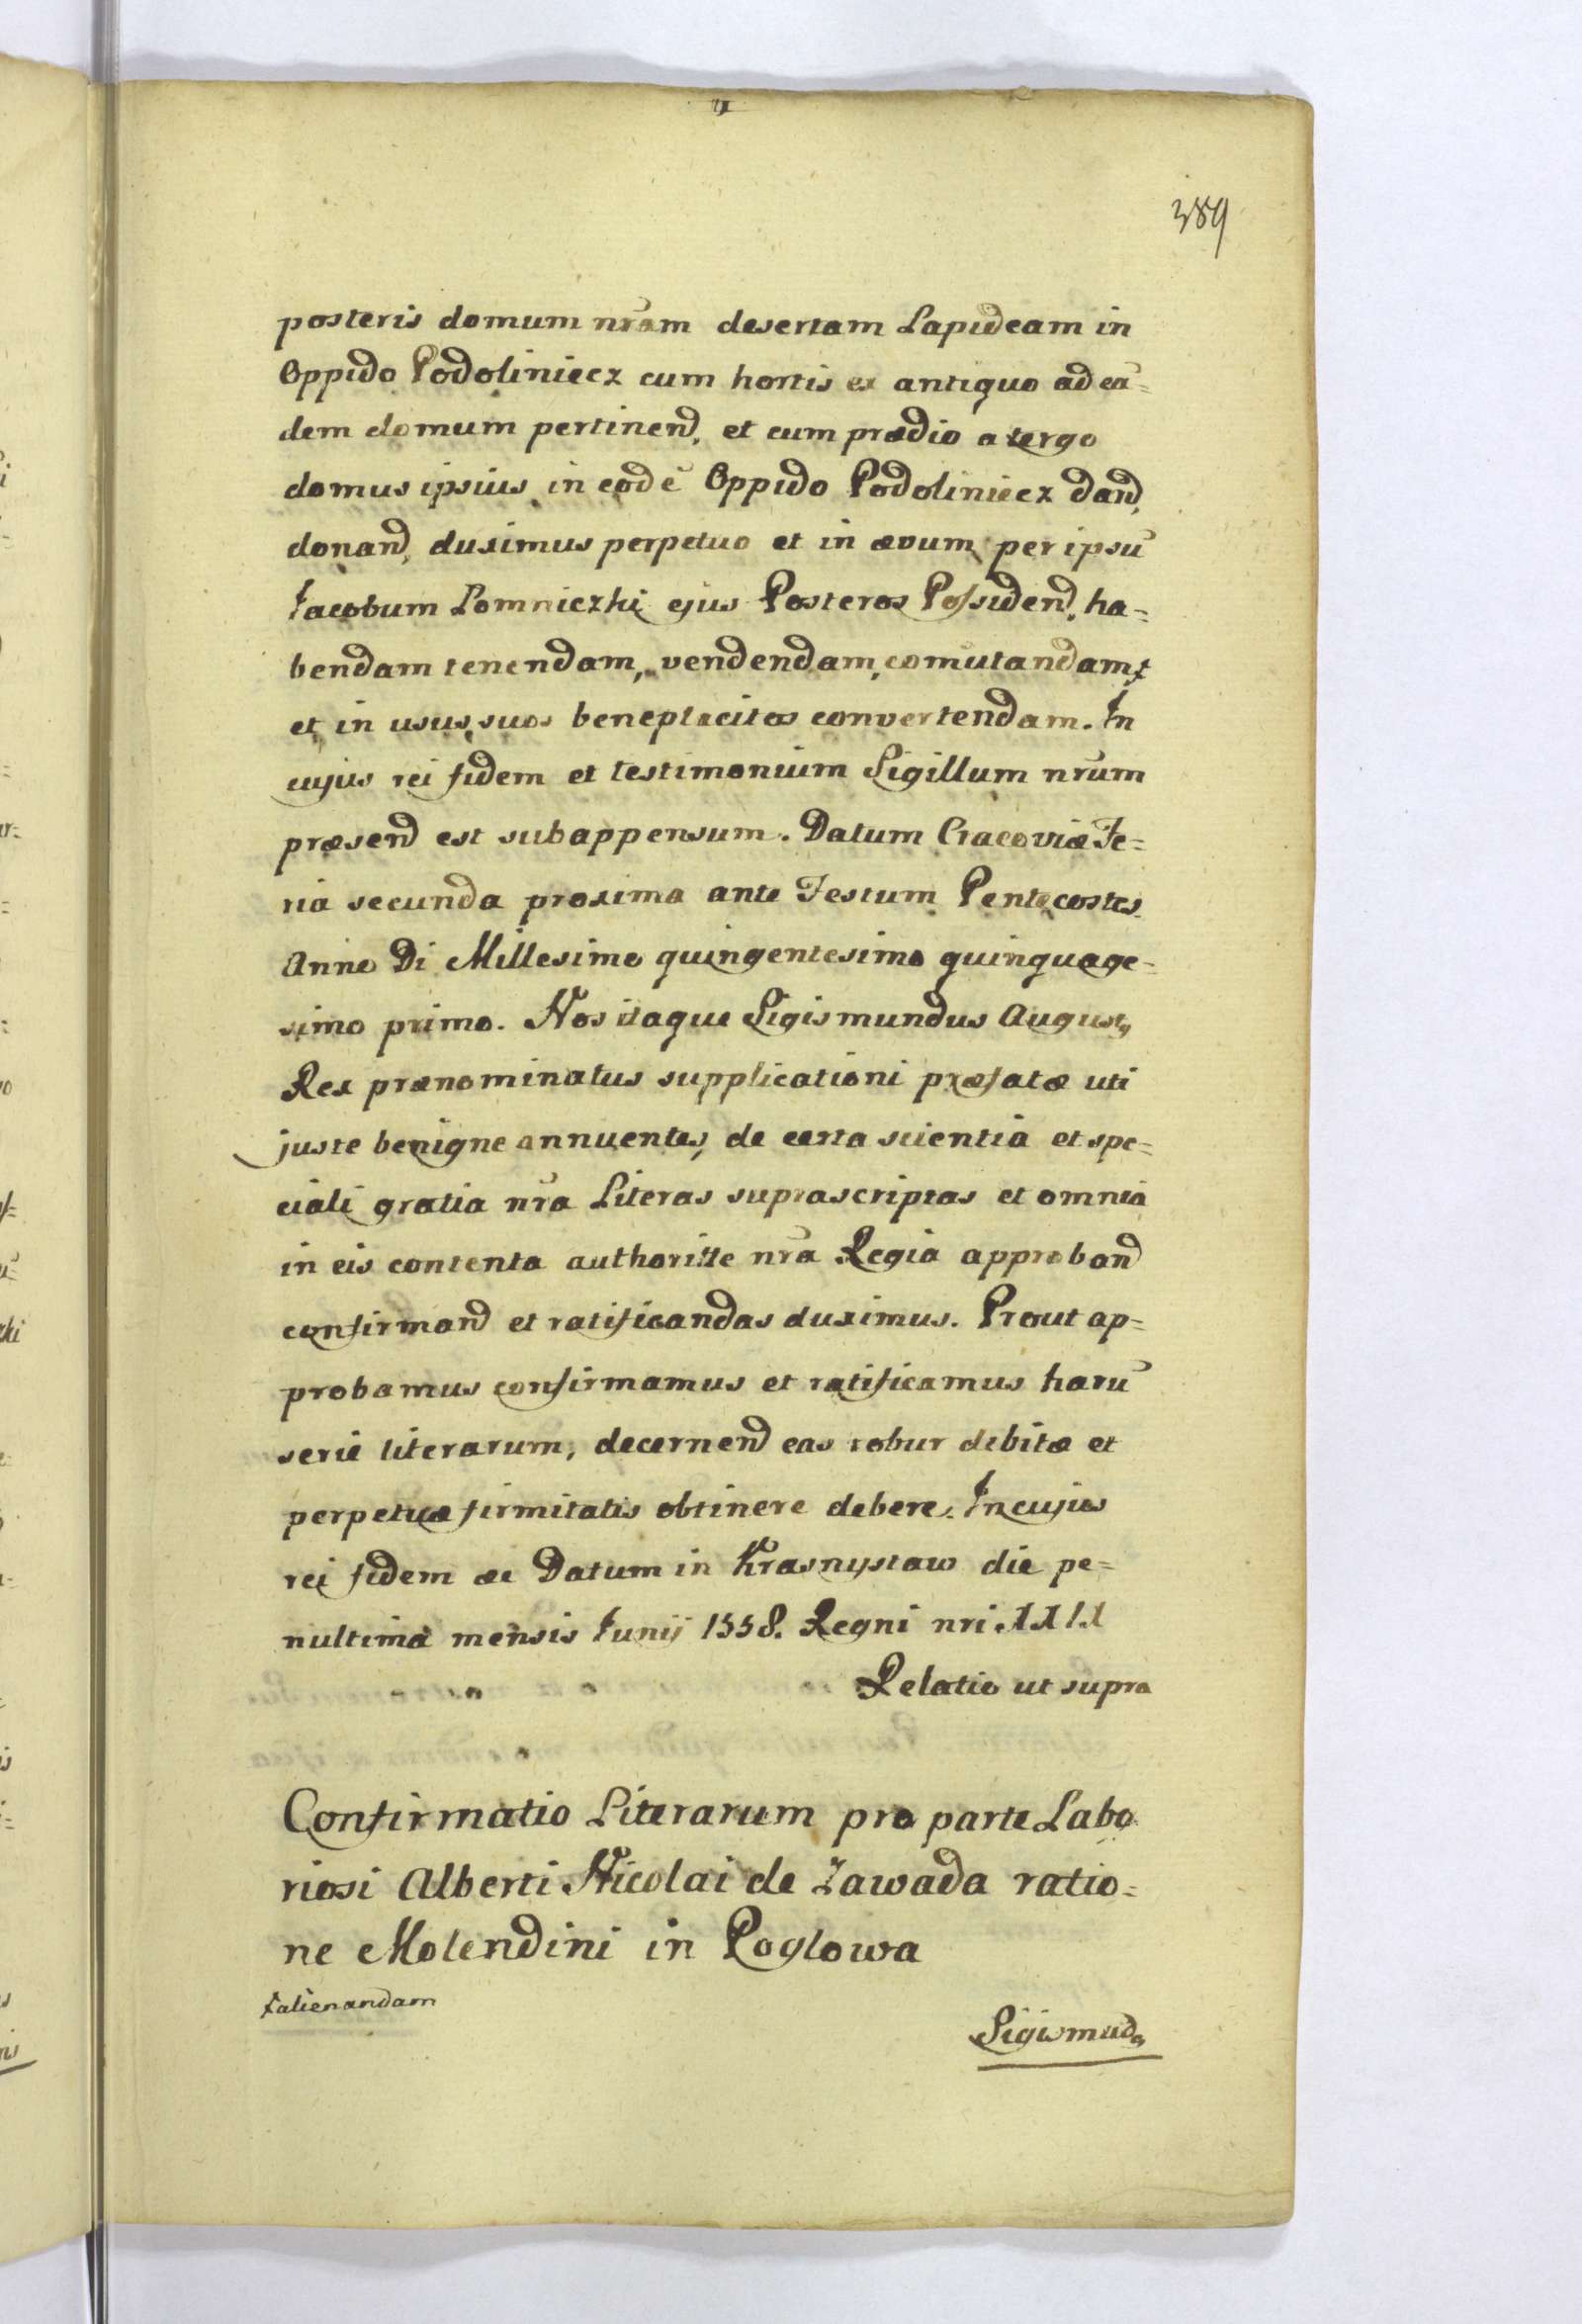 389
posteris domum nr̃am desertam Lapideam in
Oppido Podoliniecz cum hortis ex antiquo ad eã=
dem domum pertinend, et cum prædio a tergo
domus ipsius in eodẽ Oppido Podoliniecz dand,
donand, duximus perpetuo et in ævum per ipsũ
Jacobum Lomniczki ejus Posteros Possidend, ha=
bendam tenendam, vendendam, com̃utandam ɫ
et in usus suos beneplacitos convertendam. In
cujus rei fidem et testimonium Sigillum nr̃um
præsend est subappensum. Datum Cracoviæ Fe=
ria secunda proxima ante Festum Pentecostes
Anno Di Millesimo quingentesimo quinquage=
simo primo. Nos itaque Sigismundus August,
Rex prænominatus supplicationi præfatæ uti
juste benigne annuentes, de certa scientia et spe=
ciali gratia nr̃a Literas suprascriptas et omnia
in eis contenta authoritte nr̃a Regia approband
confirmand et ratificandas duximus. Prout ap=
probamus confirmamus et ratificamus harũ
serie literarum, decernend eas robur debitæ et
perpetuæ firmitatis obtinere debere. In cujus
rei fidem æc Datum in Krasnystaw die pe=
nultima mensis Junij 1558. Regni nri.
Relatio ut supra
Confirmatio Literarum pro parte Labo
riosi Alberti Nicolai de Zawada ratio=
ne Molendini in Roglowa
ɫalienandam
Sigismud,